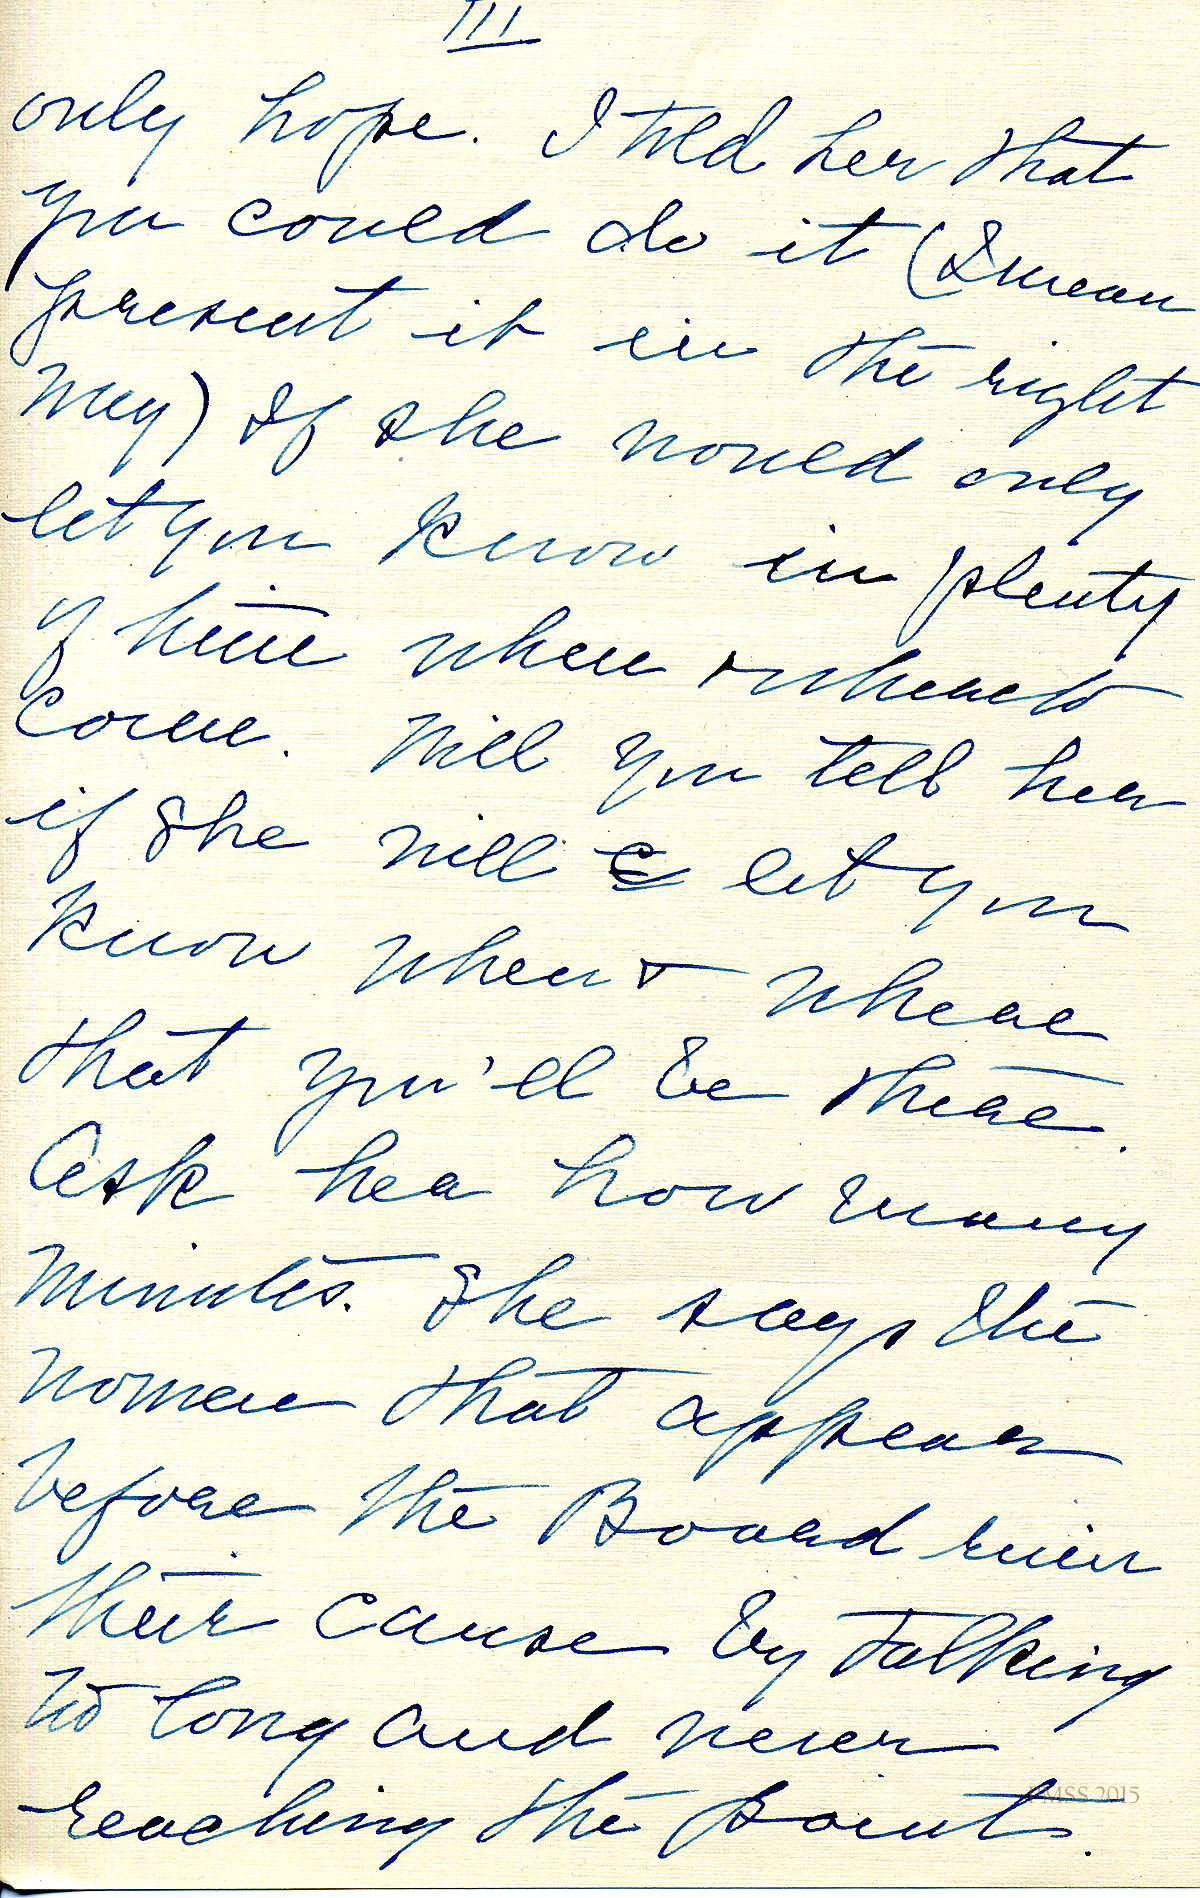 III
only hope. I told her that
you could do it (I mean
present it in the right
way) If she would only
let you know in plenty
of time when + where to
come. Will you tell her
if she will let you
know when + where
that you'll be there.
Ask her how many
minutes. She says the
women that appear
before the Board ruin
their cause by talking
to long and never
reaching the point.
MSS 2015